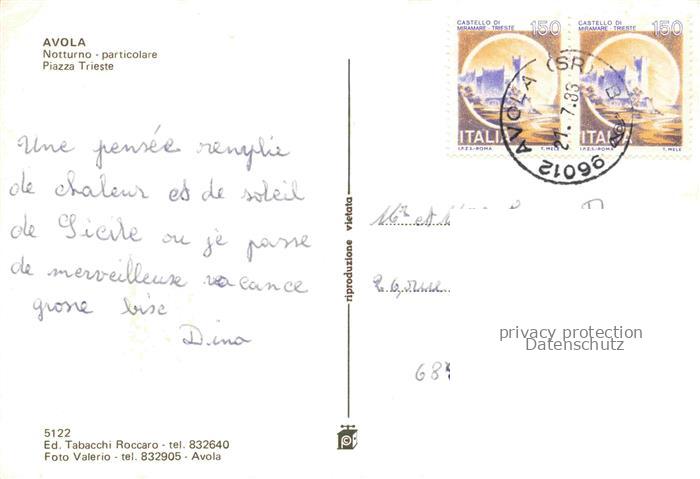 AVOLA
Notturno - particolare
Piazza Trieste
CASTELLO DI MIRAMARE - TRIESTE 150
ITALIA
I.P.Z.S. - ROMA T. MELE
CASTELLO DI MIRAMARE - TRIESTE 150
ITALIA
I.P.Z.S. - ROMA T. MELE
96012 AVOLA (SR)
21.7.83
Une pensée remplie
de chaleur et de soleil
de Sicile ou je passe
de merveilleuse vacance
grosse bise
Dino
riproduzione vietata
Mr et
26, rue
68
privacy protection
Datenschutz
5122
Ed. Tabacchi Roccaro - tel. 832640
Foto Valerio - tel. 832905 - Avola